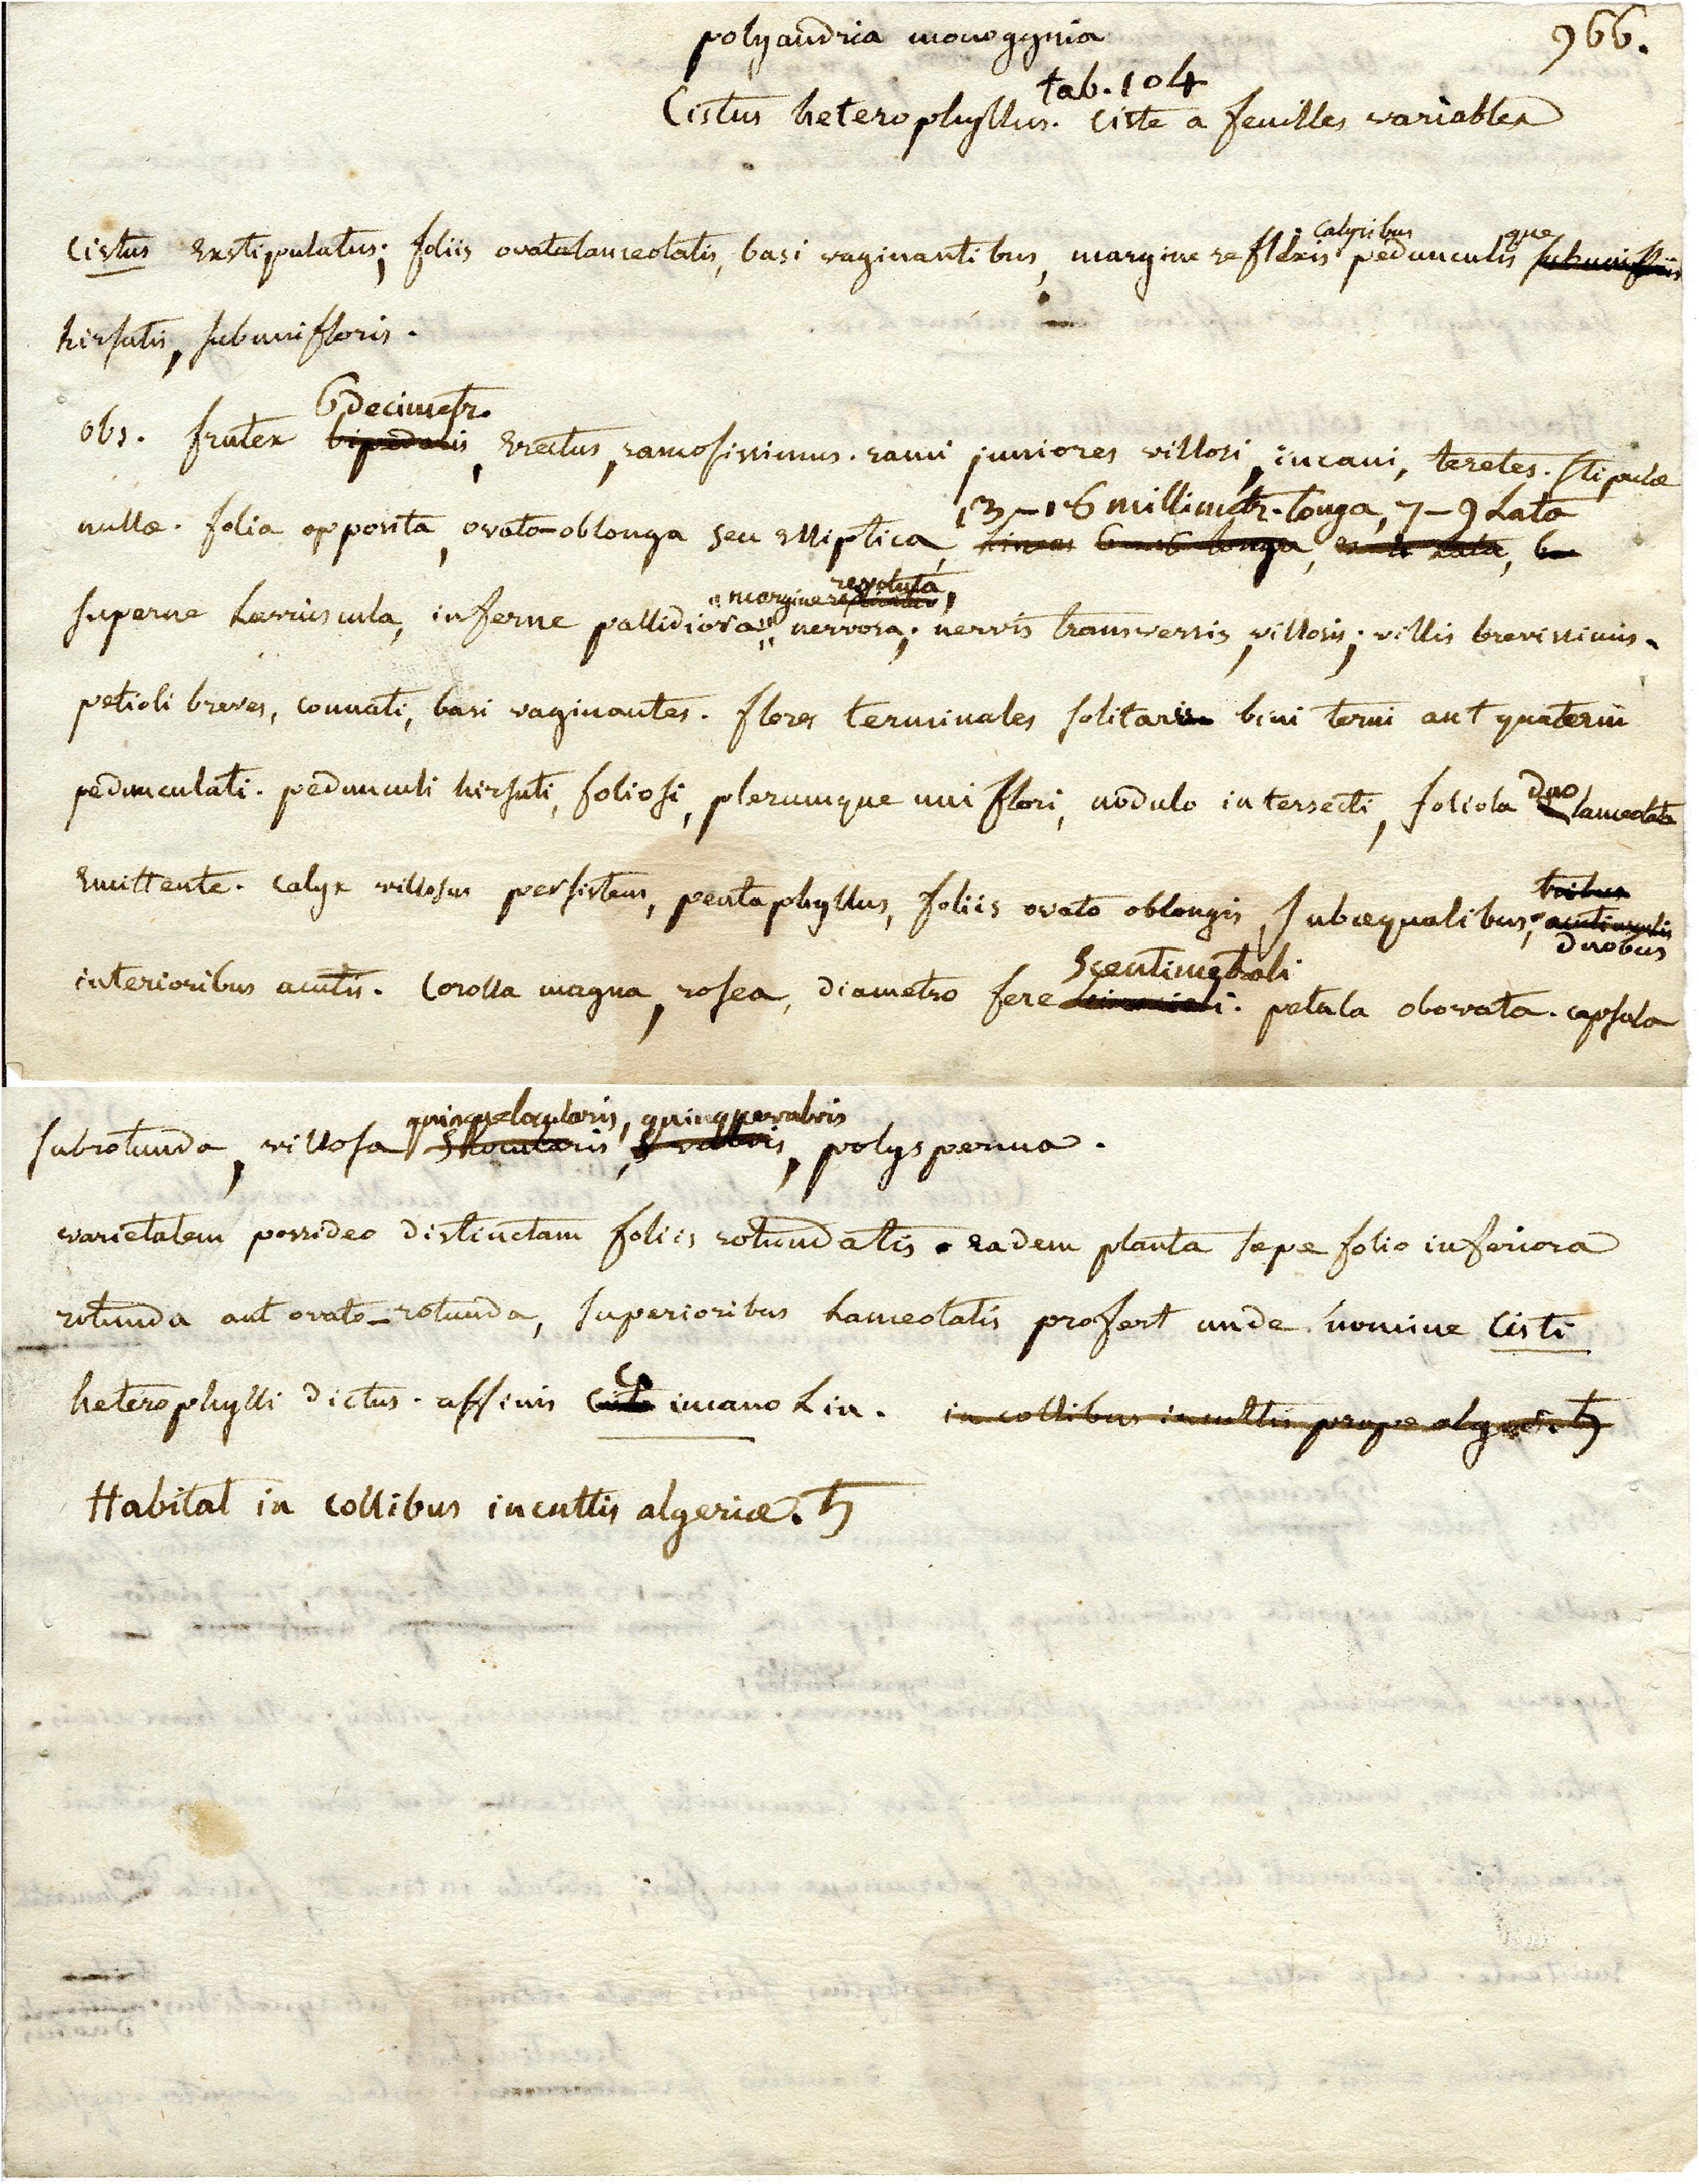 polyandria monogynia
966.
tab. 104
Cistus heterophyllus. Ciste a feuilles variables
Cistus exstipulatus; foliis ovatolanceolatis, basi vaginantibus, margine reflexis calycibus pedunculisque subunifloris
hirsutis, subunifloris.
6 decimetr.
obs. frutex bipedalis, erectus, ramosissimus. rami juniores villosi, incani, teretes. stipulæ
13-16 millimetr. longa, 7-9 lata
nullæ. folia opposita, ovato-oblonga seu elliptica, lineas 6 longa, lata,
margine revoluta,
superne læviuscula, inferne pallidiora, nervosa; nervis transversis, villosis; villis brevissimis.
petioli breves, connati, basi vaginantes. flores terminales solitarii bini terni aut quaterni
pedunculati. pedunculi hirsuti, foliosi, plerumque uni flori, nodulo intersecti, foliola duo lanceolata
emittente. calyx villosus persistens, pentaphyllus, foliis ovato oblongis, subæqualibus, tribus
duobus
5 centimetrali
interioribus acutis. Corolla magna, rosea, diametro fere. petala obovata. capsula
quinquelocularis, quinquevalvis
subrotunda, villosa 5 locularis, 5 valvis, polysperma.
varietatem possideo distinctam foliis rotundatis. eadem planta sæpe folio inferiora
rotunda aut ovato-rotunda, superioribus lanceolatis profert unde nomine Cisti
heterophylli dictus. affinis C. incano Lin. in collibus incultis prope alger. ♄
Habitat in collibus incultis algeriæ. ♄